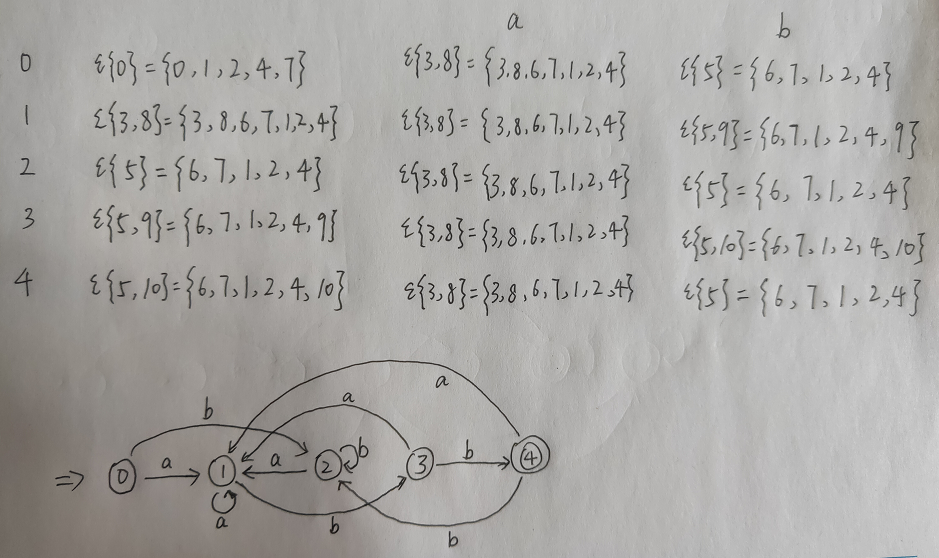 a b
0 ε{0}={0,1,2,4,7} ε{3,8}={3,8,6,7,1,2,4} ε{5}={6,7,1,2,4}
1 ε{3,8}={3,8,6,7,1,2,4} ε{3,8}={3,8,6,7,1,2,4} ε{5,9}={6,7,1,2,4,9}
2 ε{5}={6,7,1,2,4} ε{3,8}={3,8,6,7,1,2,4} ε{5}={6,7,1,2,4}
3 ε{5,9}={6,7,1,2,4,9} ε{3,8}={3,8,6,7,1,2,4} ε{5,10}={6,7,1,2,4,10}
4 ε{5,10}={6,7,1,2,4,10} ε{3,8}={3,8,6,7,1,2,4} ε{5}={6,7,1,2,4}
a
b a
⇒ 0 a 1 a 2 b 3 b 4
a b b